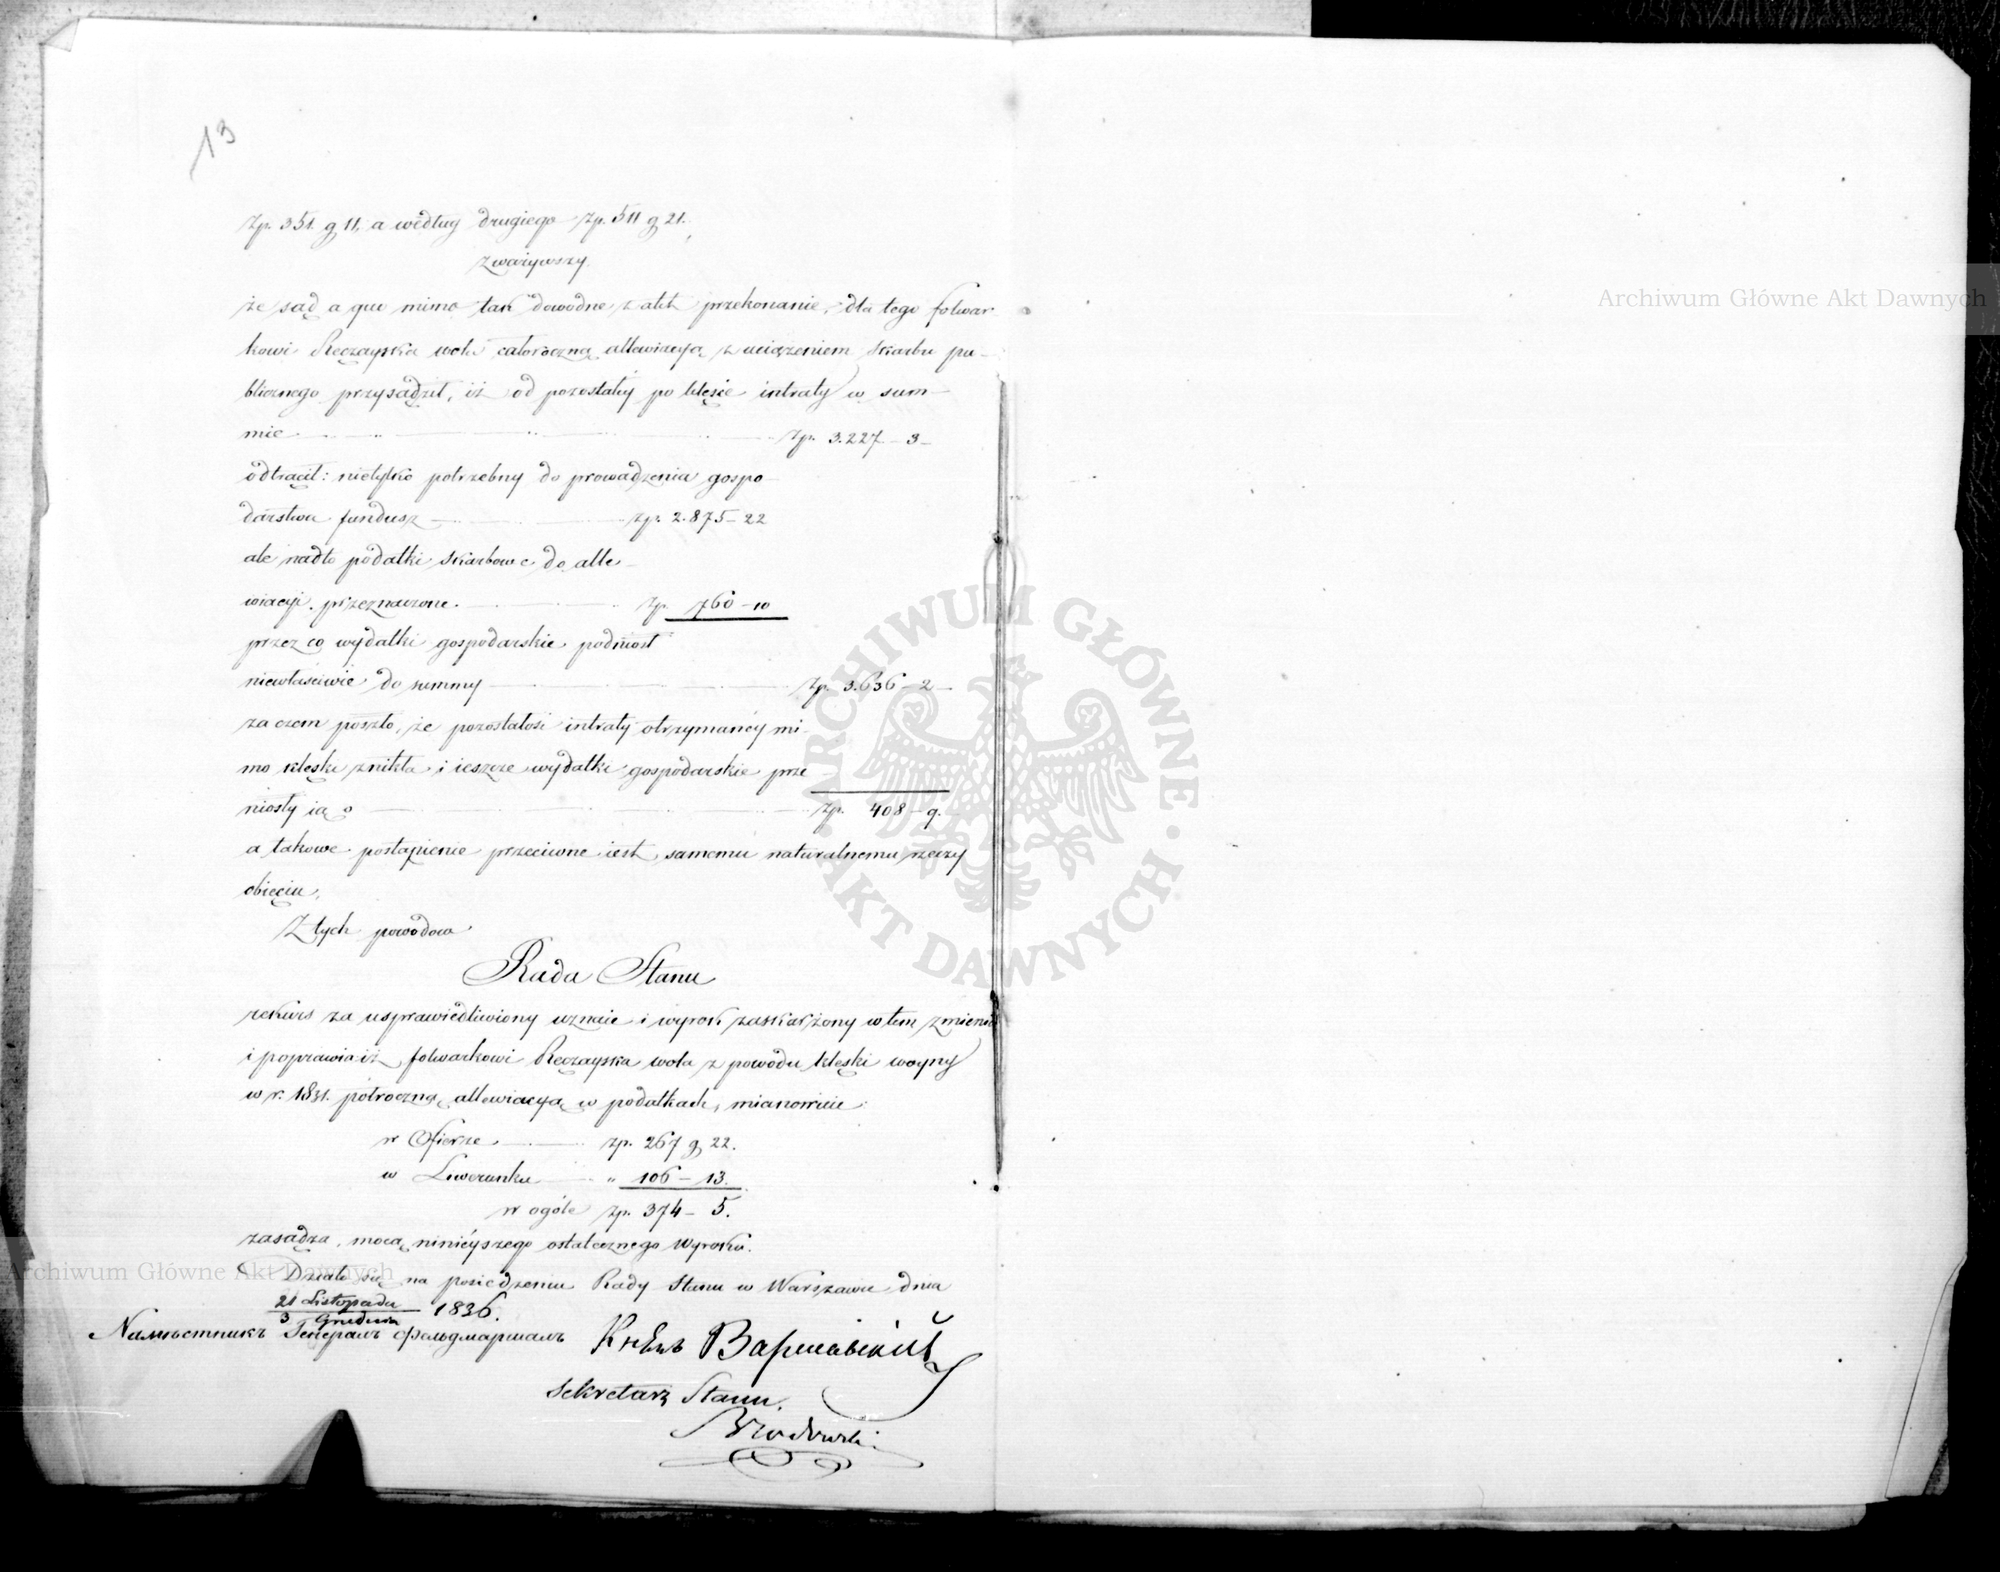 13
Zp. 351. g 11, a według drugiego Zp. 511 g 21.,
zważywszy.
że sąd a quo mimo tak dowodne z akt przekonanie, dla tego folwar
kowi Ręczayska wola całoroczną allewiacyą z uciążeniem Skarbu pu-
blicznego przysądził, iż od pozostałéy po klęsce intraty w sum-
mie Zp. 3.227 – 3 –
odtrącił: nietylko potrzebny do prowadzenia gospo
darstwa fundusz Zp. 2.875 – 22
ale nadto podatki skarbowe do alle-
wiacyi przeznaczone. Zp. 760 – 10
przez co wydatki gospodarskie podniosł
niewłaściwie do summy Zp. 3.636 – 2 –
za czem poszło, że pozostałość intraty otrzymanéy mi-
mo klęski znikła i ieszcze wydatki gospodarskie prze
niosły ią o Zp. 408 – 9. –
a takowe postąpienie przeciwne iest samemu naturalnemu rzeczy
obięciu,
Z tych powodow
Rada Stanu
rekurs za usprawiedliwiony uznaie i wyrok zaskarżony w tem zmienia
i poprawia iż folwarkowi Ręczayska wola z powodu klęski woyny
w r. 1831. pótroczną allewiacyą w podatkach, mianowicie:
w Ofierze Zp. 267 g 22.
w Liwerunku " 106 – 13.
w ogóle Zp. 374 – 5.
zasądza, mocą ninieyszego ostatecznego Wyroku.
Działo się na posiedzeniu Rady Stanu w Warszawie dnia
21 Listopada
3 Grudnia 1836.
Намѣстникъ Генералъ Фельдмаршалъ Князь Варшавскій
Sekretarz Stanu.
Brodowski
Archiwum Główne Akt Dawnych
ARCHIWUM GŁÓWNE AKT DAWNYCH
Archiwum Główne Akt Dawnych